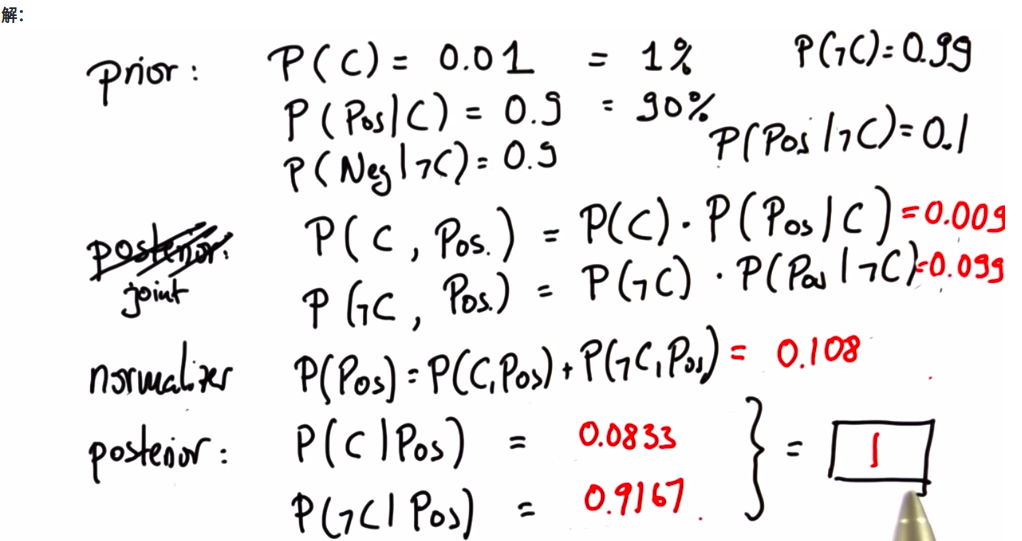 解：
prior: P(C) = 0.01 = 1% P(¬C)=0.99
P(Pos|C) = 0.9 = 90%
P(Pos|¬C)=0.1
P(Neg|¬C)=0.9
posterior:
joint
P(C, Pos.) = P(C)·P(Pos|C) =0.009
P(¬C, Pos.) = P(¬C)·P(Pos|¬C)=0.099
normalizer P(Pos)=P(C,Pos)+P(¬C,Pos) = 0.108
posterior: P(C|Pos) = 0.0833
= 1
P(¬C|Pos) = 0.9167